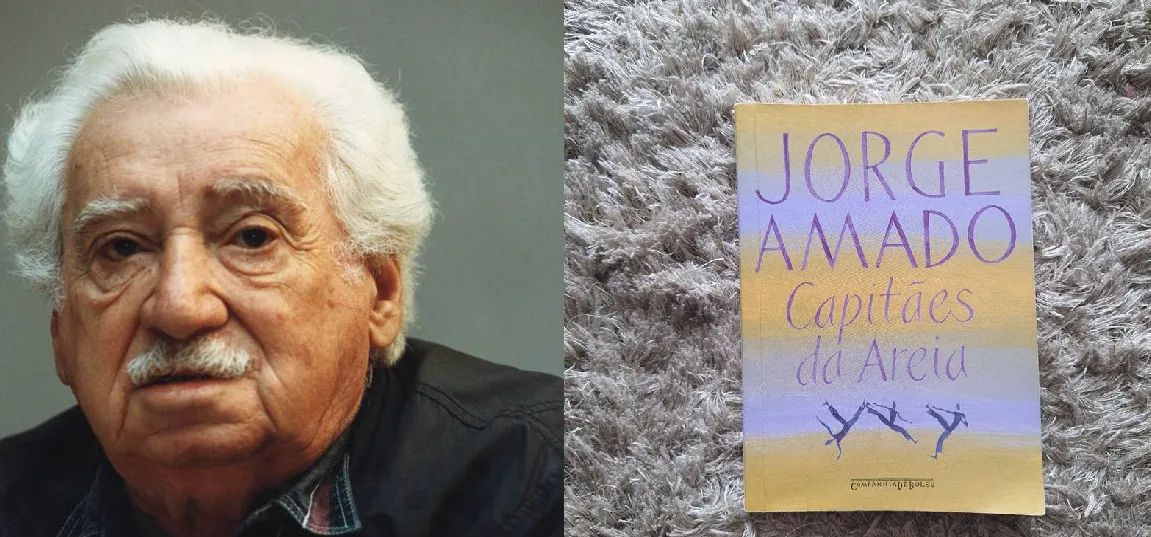 JORGE
AMADO
Capitães
da Areia
COMPANHIADEBOLSO